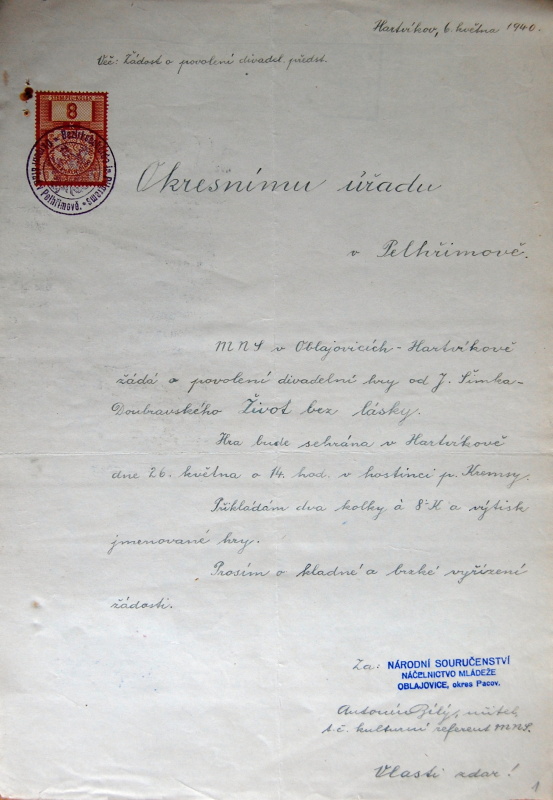 Hartvíkov, 6. května 1940.
Věc: Žádost o povolení divadel. předst.
8
Okresnímu úřadu
v Pelhřimově.
MNS v Oblajovicích-Hartvíkově
žádá o povolení divadelní hry od J. Šimka-
Doubravského Život bez lásky.
Hra bude sehrána v Hartvíkově
dne 26. května o 14. hod. v hostinci p. Kremsy.
Přikládám dva kolky à 8·K a výtisk
jmenované hry.
Prosím o kladné a brzké vyřízení
žádosti.
Za: NÁRODNÍ SOURUČENSTVÍ
NÁČELNICTVO MLÁDEŽE
OBLAJOVICE, okres Pacov.
Antonín Bílý, učitel,
t. č. kulturní referent MNS.
Vlasti zdar!
1